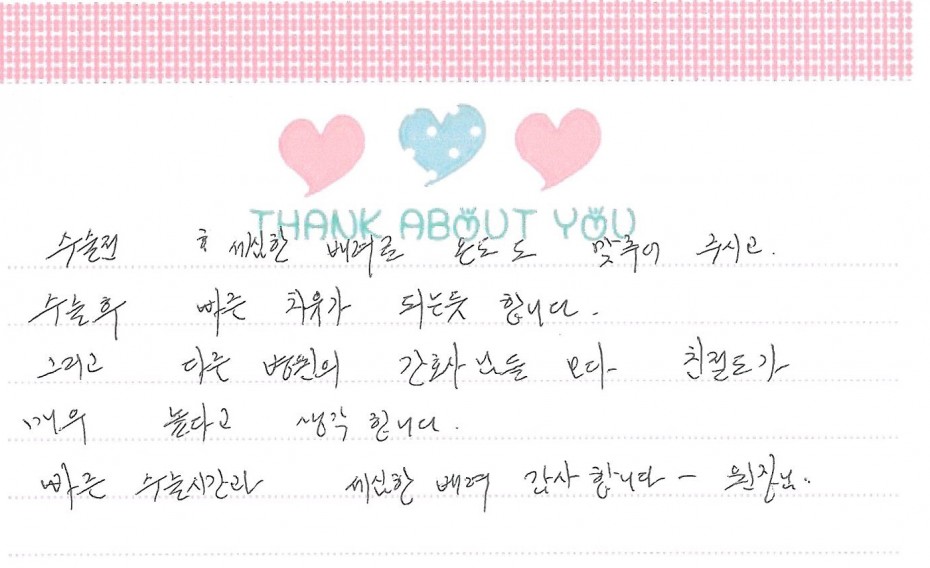 THANK ABOUT YOU
수술전 후 세심한 배려로 온도도 맞추어 주시고.
수술후 빠른 치유가 되는듯 합니다.
그리고 다른 병원의 간호사님들 보다 친절도가
매우 높다고 생각 합니다.
빠른 수술시간과 세심한 배려 감사합니다 - 원장님..